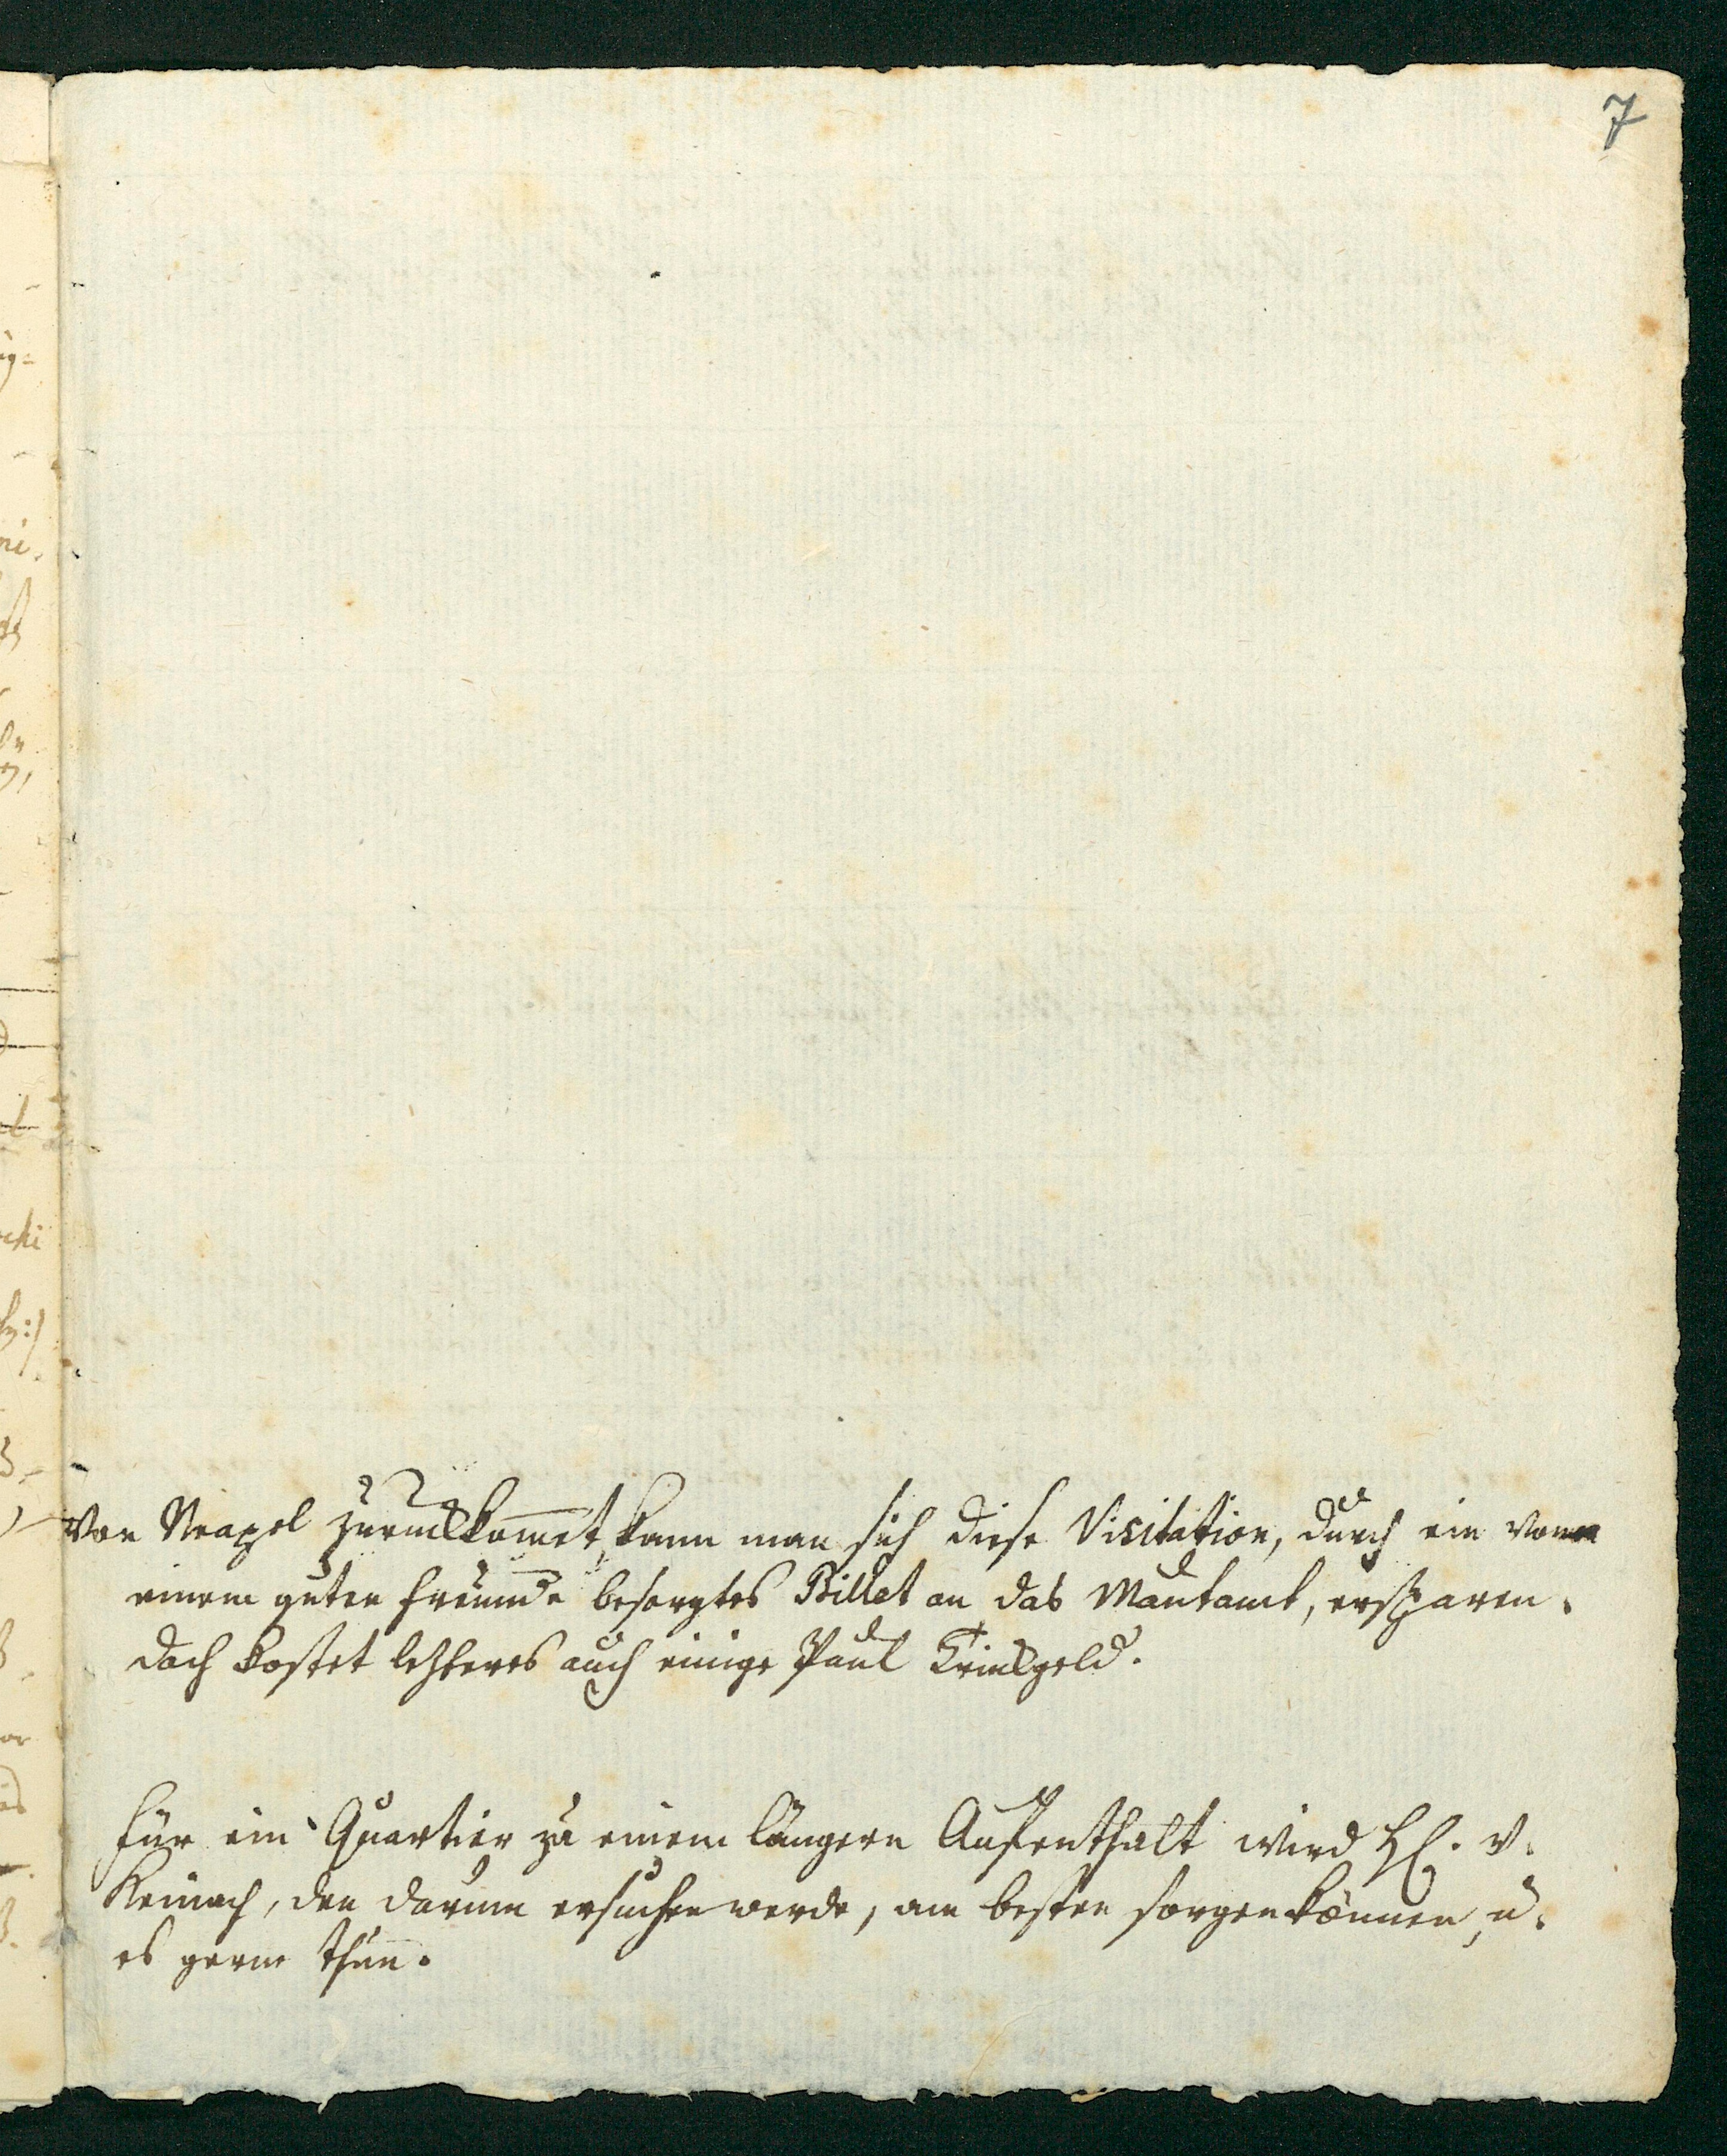 7
von Neapel zurückkom̄et, kann man sich diese Visitation, durch ein von
einem guten Freunde besorgtes Billet an das Mautamt, ersparen.
doch kostet lezteres auch einige Paul Trinkgeld.
Für ein Quartier zu einem längern Aufenthalt wird H. v.
Reinach, den darum ersuchen werde, am besten sorgen können, u.
es gerne thun.